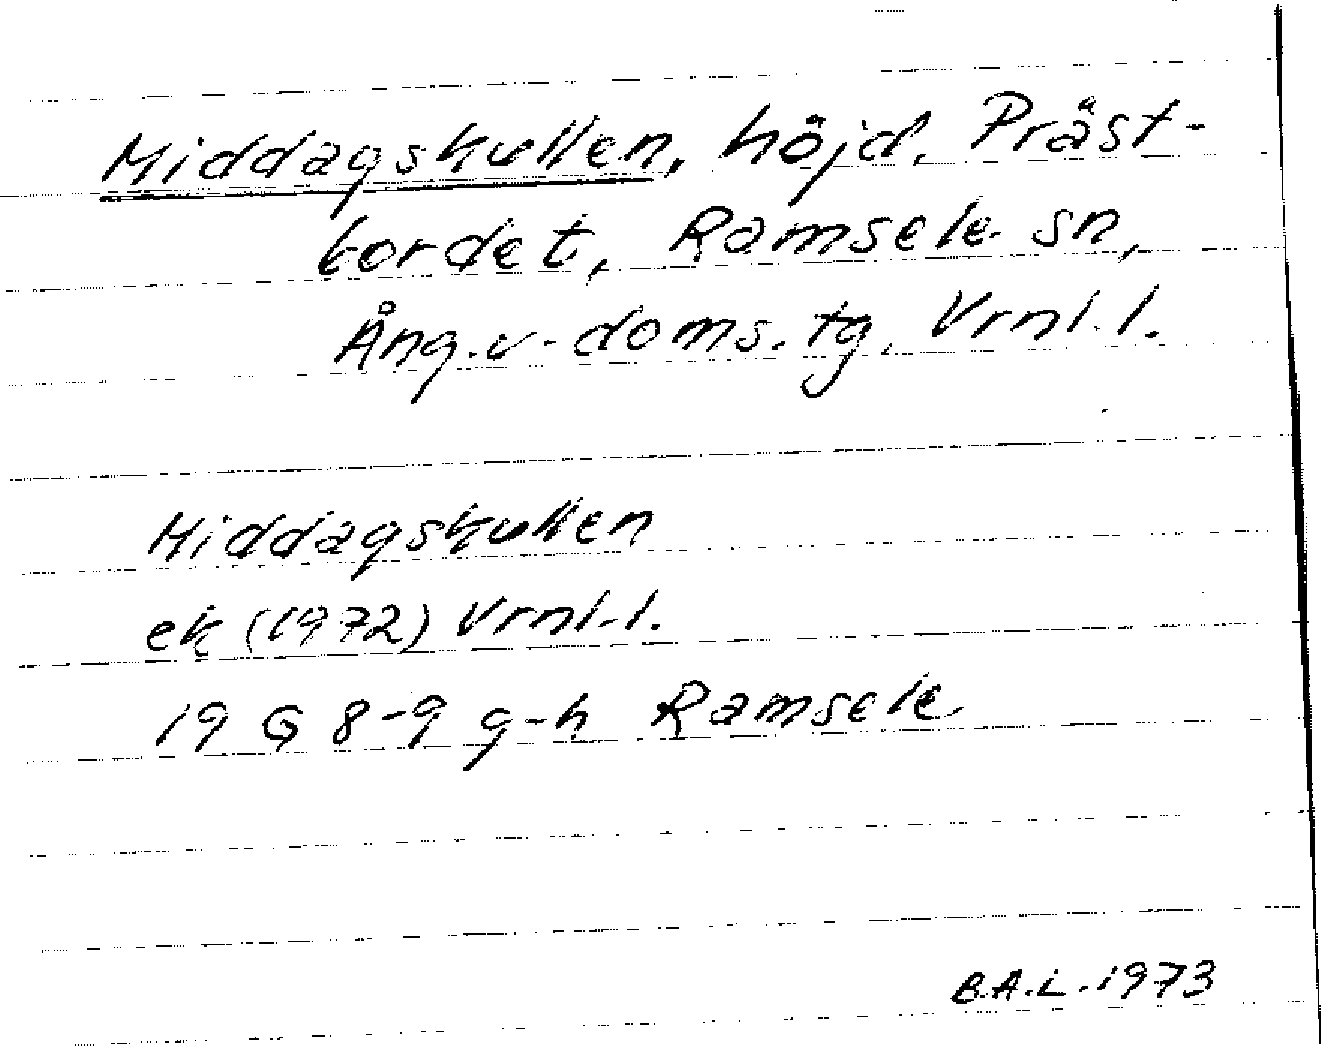 Middagskullen, höjd, Präst-
bordet, Ramsele sn,
Ång.v. doms. tg, Vrnl. l.
Middagskullen
ek (1972) Vrnl. l.
19 G 8-9 g-h Ramsele
B.A.L. 1973